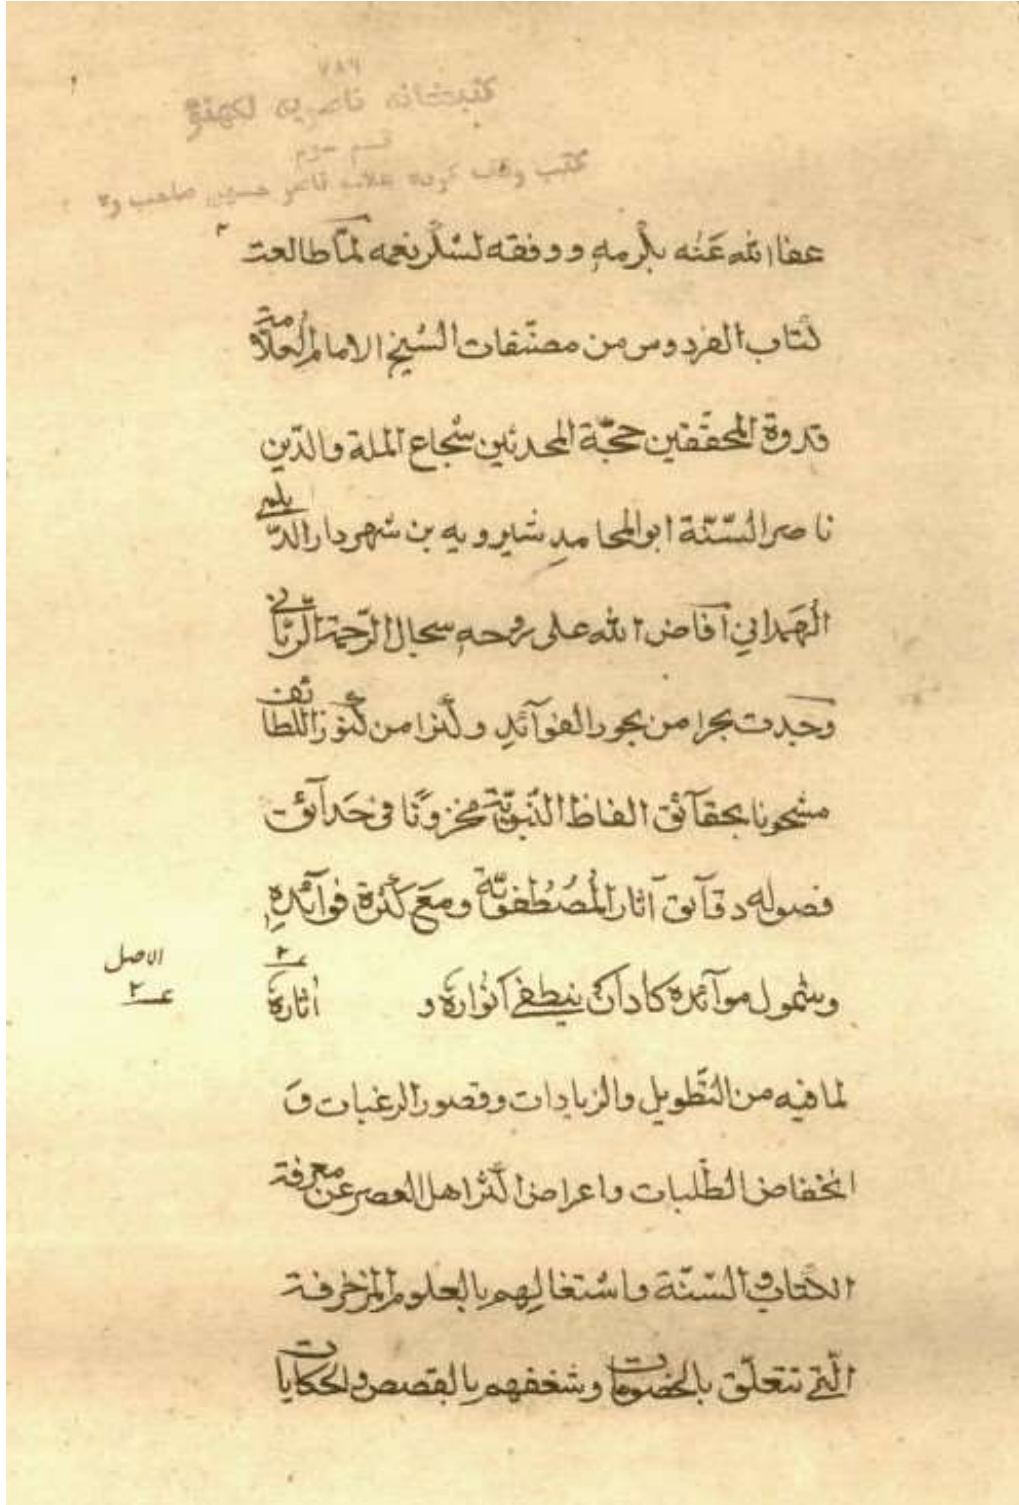 ٧٨٦
كتبخانه ناصريه لكهنؤ
قسم سوم
كتب وقف كرده علامه ناصر حسين صاحب
عفا الله عَنه بكرمهِ ووفقه لشكر نعمه لمّا طالعت
كتاب الفردوس من مصنّفات الشيخ الامام العلامة
قدوة المحقّقين حجّة المحدثين شجاع الملة والدّين
ناصر السّنّة ابو المحامدِ شيرويه بن شهردار الدّيلمي
الهَمداني افاض الله على روحهِ سجال الرّحمة الرّبّاني
وجدت بحرا من بحور الفوآئدِ وكنزا من كنوز اللطائف
مشحونا بحقآئق الفاظ النّبويّة مخزونًا في حَدآئق
فصوله دقآئق آثار المُصُطفويّة ومَعَ كثرة فوآئدهِ
وشمول موآئده كاد اَن ينطفي اَنواره و اُثاره
الاصل
لما فيه من التّطويل والزيادات وقصور الرغبات وَ
انخفاض الطّلبات واعراض اكثر اهل العصر عن معرفة
الكتاب والسّنّة واشتغالِهم بالعلوم المزخرفة
الّتي تتعلّق بالخصومات وشغفهم بالقصص والحكايات